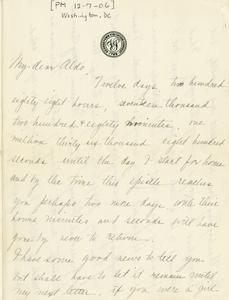 [PM 12-7-06]
Washington, DC
My dear Aldo,
Twelve days, two hundred
eighty eight hours, seventeen thousand
two hundred & eighty minutes, one
million thirty six thousand eight hundred
seconds until the day I start for home
and by the time this epistle reaches
you perhaps two more days with their
hours minutes and seconds will have
gone by never to return.
I have some good news to tell you
but shall have to let it remain until
my next letter. If you were a girl